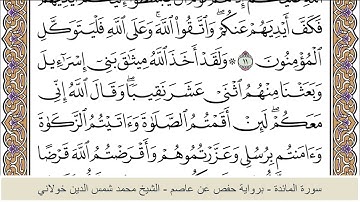 فَكَفَّ أَيْدِيَهُمْ عَنكُمْ ۖ وَٱتَّقُوا۟ ٱللَّهَ ۚ وَعَلَى ٱللَّهِ فَلْيَتَوَكَّلِ
ٱلْمُؤْمِنُونَ ١١ ۞ وَلَقَدْ أَخَذَ ٱللَّهُ مِيثَٰقَ بَنِىٓ إِسْرَٰٓءِيلَ
وَبَعَثْنَا مِنْهُمُ ٱثْنَىْ عَشَرَ نَقِيبًا ۖ وَقَالَ ٱللَّهُ إِنِّى
مَعَكُمْ ۖ لَئِنْ أَقَمْتُمُ ٱلصَّلَوٰةَ وَءَاتَيْتُمُ ٱلزَّكَوٰةَ
وَءَامَنتُم بِرُسُلِى وَعَزَّرْتُمُوهُمْ وَأَقْرَضْتُمُ ٱللَّهَ قَرْضًا
سورة المائدة - برواية حفص عن عاصم - الشيخ محمد شمس الدين خولاني